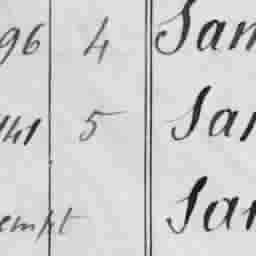 96 4 Sam
141 5 Sar
empt Sar